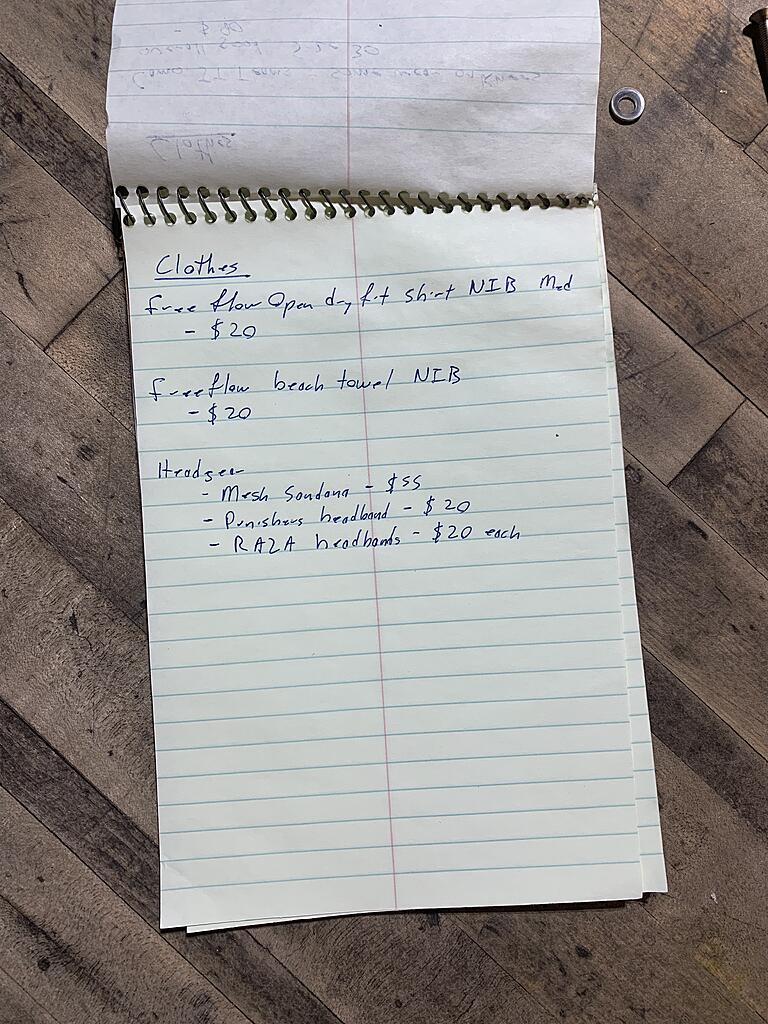 Clothes
Free flow Open dry fit shirt NIB Med
- $20
Freeflow beach towel NIB
- $20
Headgear
- Mesh Sandana - $55
- Punishers headband - $20
- RAZA headbands - $20 each